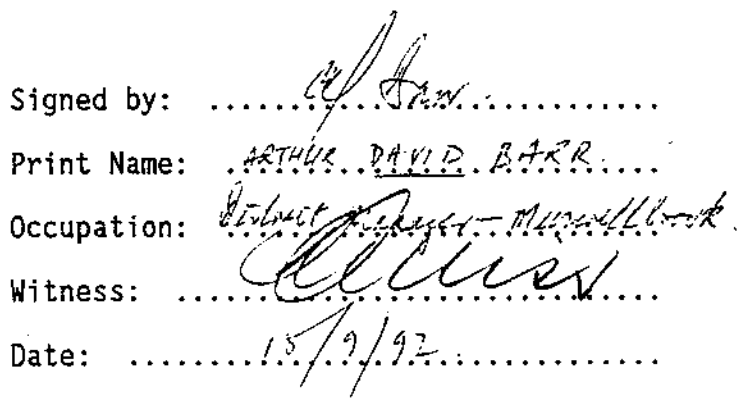 Signed by:
Print Name: ARTHUR DAVID BARR.
Occupation: District Manager - Muswellbrook.
Witness:
Date: 15/9/92